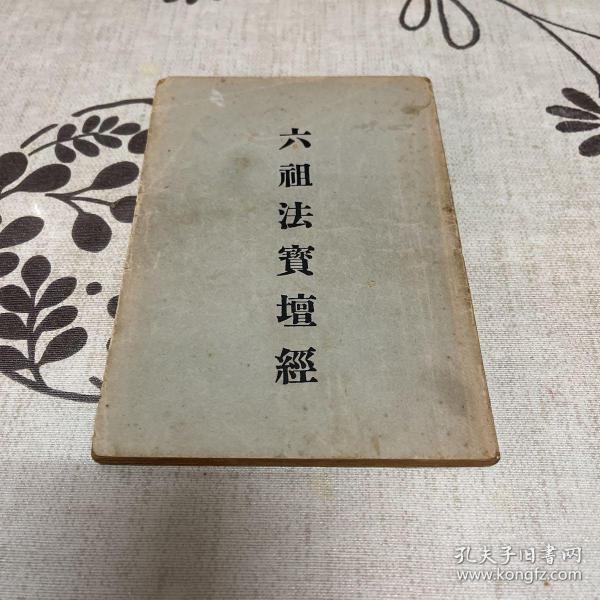 六祖法寶壇經
孔夫子旧书网
www.kongfz.com